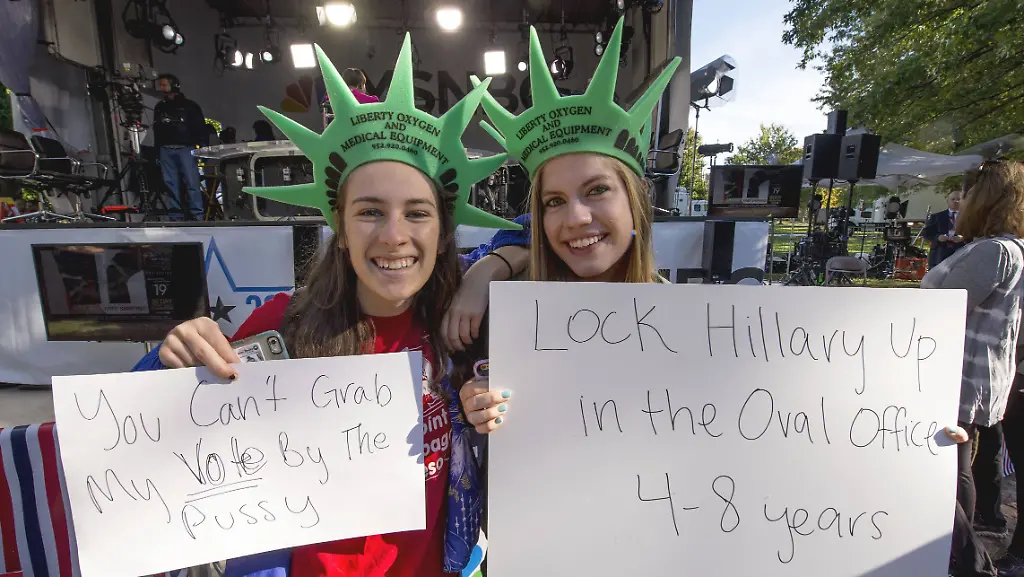 MSNBC
LIBERTY OXYGEN
AND
MEDICAL EQUIPMENT
952.920.0460
LIBERTY OXYGEN
AND
MEDICAL EQUIPMENT
952.920.0460
19
You Can't Grab
My Vote By The
pussy
Lock Hillary Up
in the Oval Office
4-8 years